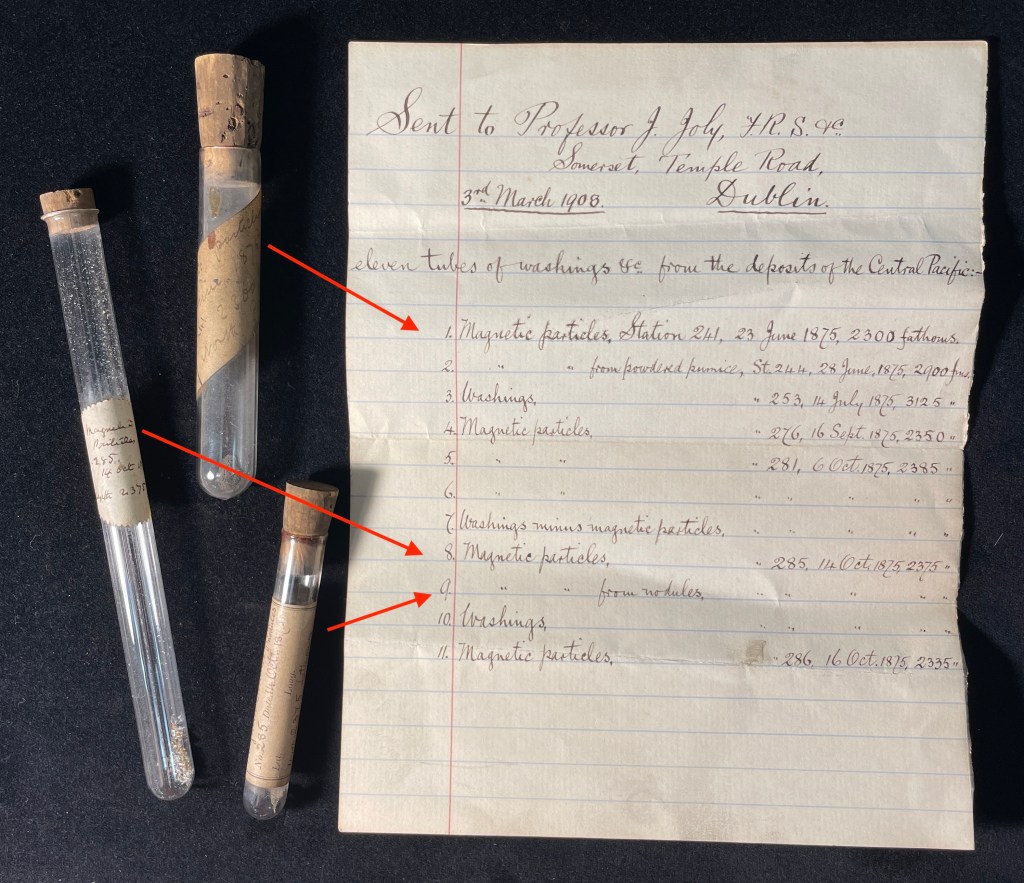 Sent to Professor J. Joly, F.R.S. &c.
Somerset, Temple Road,
3rd March 1908. Dublin.
eleven tubes of washings &c from the deposits of the Central Pacific:-
1. Magnetic particles, Station 241, 23 June 1875, 2300 fathoms.
2. " " from powdered pumice, St. 244, 28 June, 1875, 2900 fms,
3. Washings, " 253, 14 July 1875, 3125 "
4. Magnetic particles, " 276, 16 Sept. 1875, 2350 "
5. " " " 281, 6 Oct. 1875, 2385 "
6. " " " " " " "
7. Washings minus magnetic particles, " " " " "
8. Magnetic particles, " 285, 14 Oct. 1875, 2375 "
9. " " from nodules, " " " " "
10. Washings, " " " " "
11. Magnetic particles, " 286, 16 Oct. 1875, 2335 "
Magnetic
Particles
285.
14 Oct.
2375
No 285